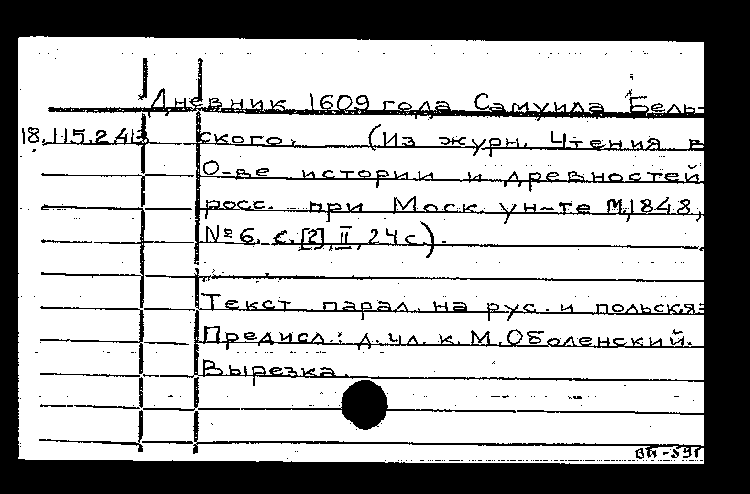 Дневник 1609 года Самуила Бель-
18.115.2.413 ского. (Из журн. Чтения в
О-ве истории и древностей
росс. при Моск. ун-те М,1848,
№6. с. [2], II, 24 с).
Текст парал. на рус. и польск яз
Предисл.: д. чл. к. М. Оболенский.
Вырезка.